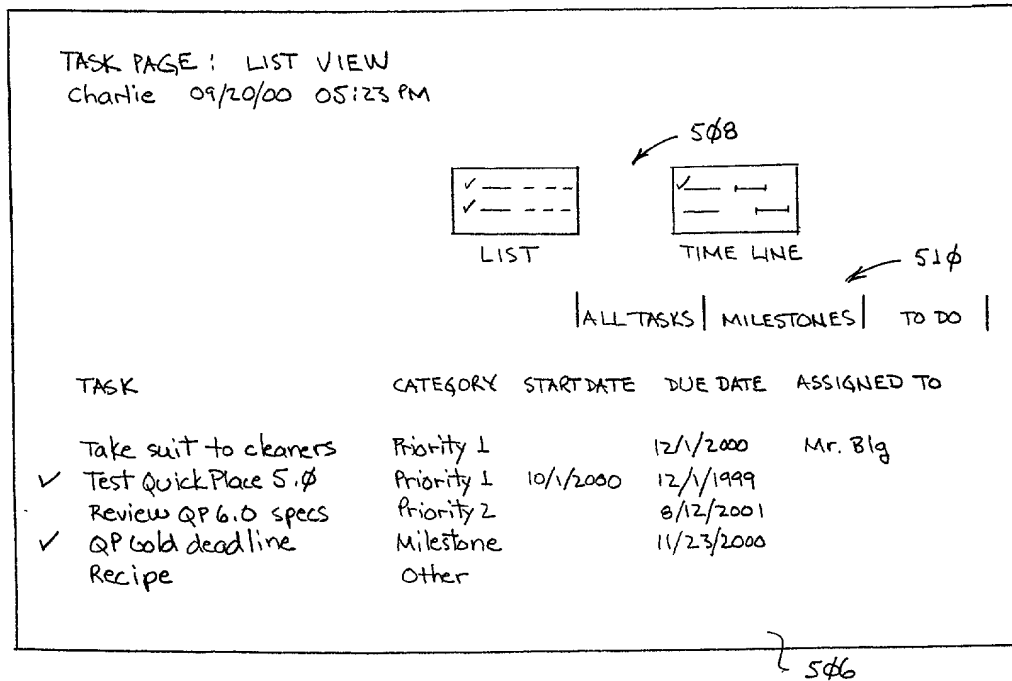 TASK PAGE: LIST VIEW
Charlie 09/20/00 05:23 PM
5Ø8
LIST
TIME LINE
51Ø
ALL TASKS | MILESTONES | TO DO |
TASK CATEGORY START DATE DUE DATE ASSIGNED TO
Take suit to cleaners Priority 1 12/1/2000 Mr. Blg
✓ Test QuickPlace 5.Ø Priority 1 10/1/2000 12/1/1999
Review QP 6.0 specs Priority 2 8/12/2001
✓ QP Gold deadline Milestone 11/23/2000
Recipe Other
5Ø6